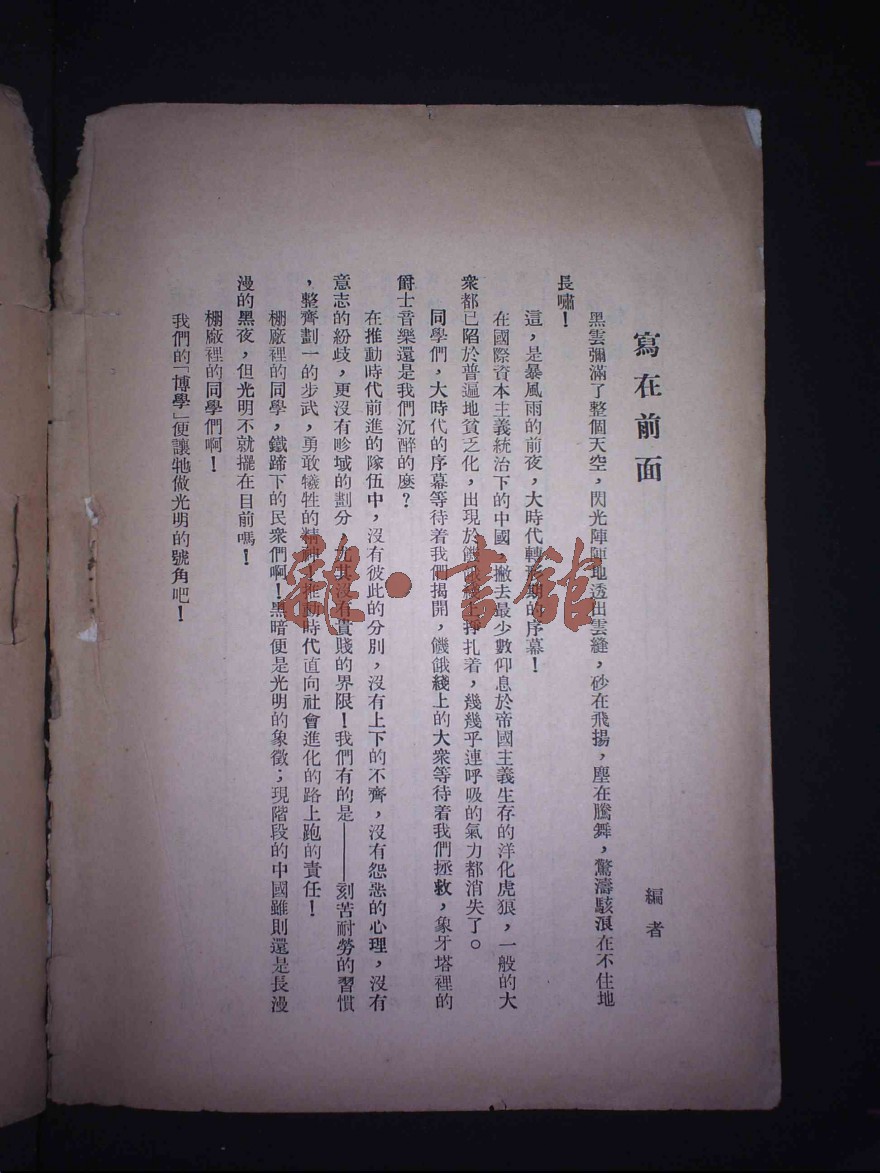 寫在前面
編者
黑雲彌滿了整個天空，閃光陣陣地透出雲縫，砂在飛揚，塵在騰舞，驚濤駭浪在不住地
長嘯！
這，是暴風雨的前夜，大時代轉形期的序幕！
在國際資本主義統治下的中國，撇去最少數仰息於帝國主義生存的洋化虎狼，一般的大
衆都已陷於普遍地貧乏化，出現於饑餓綫上掙扎着，幾幾乎連呼吸的氣力都消失了。
同學們，大時代的序幕等待着我們揭開，饑餓綫上的大衆等待着我們拯救，象牙塔裡的
爵士音樂還是我們沉醉的麼？
在推動時代前進的隊伍中，沒有彼此的分別，沒有上下的不齊，沒有怨惡的心理，沒有
意志的紛歧，更沒有畛域的劃分，尤其沒有貴賤的界限！我們有的是——刻苦耐勞的習慣
，整齊劃一的步武，勇敢犧牲的精神！推動時代直向社會進化的路上跑的責任！
棚廠裡的同學，鐵蹄下的民衆們啊！黑暗便是光明的象徵；現階段的中國雖則還是長漫
漫的黑夜，但光明不就擺在目前嗎！
棚廠裡的同學們啊！
我們的「博學」便讓牠做光明的號角吧！
龍·書館